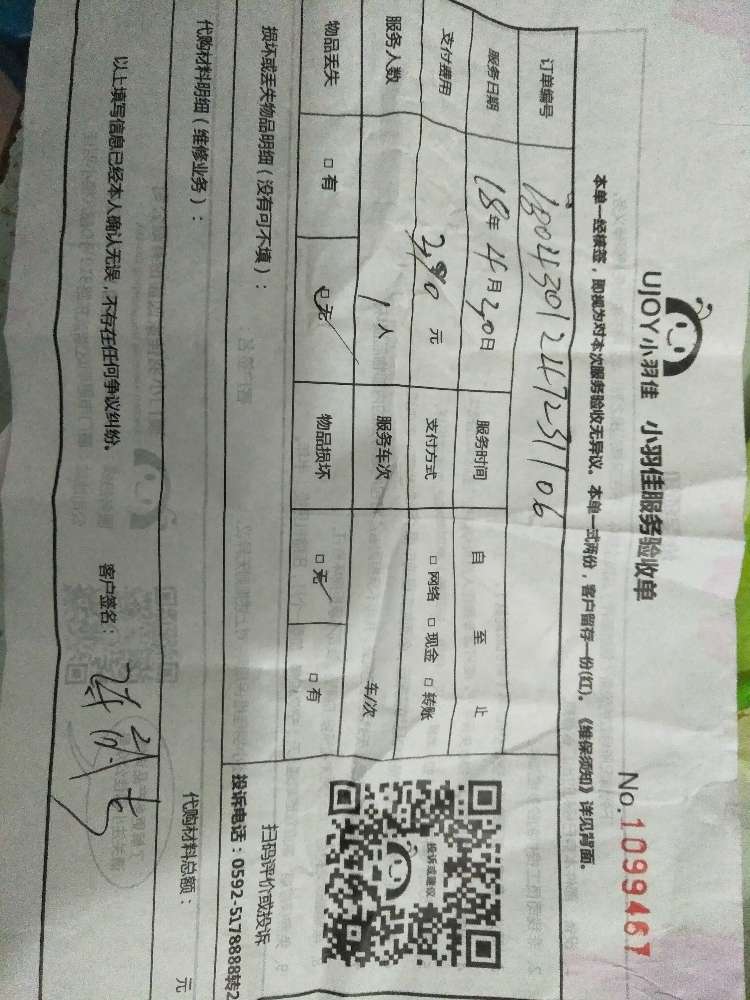 UJOY小羽佳 小羽佳服务验收单
No.1099467
本单一经核签，即视为对本次服务验收无异议。本单一式两份，客户留存一份(红)。《维保须知》详见背面。
订单编号
服务日期 18年4月30日 服务时间 自 至 止
支付费用 元 支付方式 □网络 □现金 □转账
服务人数 1人 服务车次 车/次
物品丢失 □有 □无 物品损坏 □无 □有
损坏或丢失物品明细（没有可不填）：
投诉或建议
扫码评价或投诉
投诉电话：0592-5178888转2
代购材料明细（维修业务）：
代购材料总额： 元
以上填写信息已经本人确认无误，不存在任何争议纠纷。
客户签名：